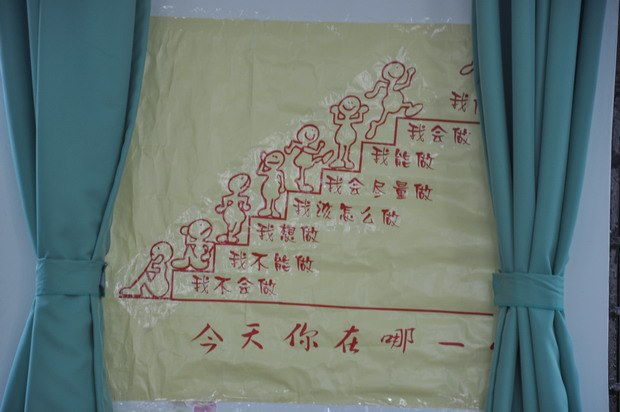 我
我会做
我能做
我会尽量做
我该怎么做
我想做
我不能做
我不会做
今天你在哪一